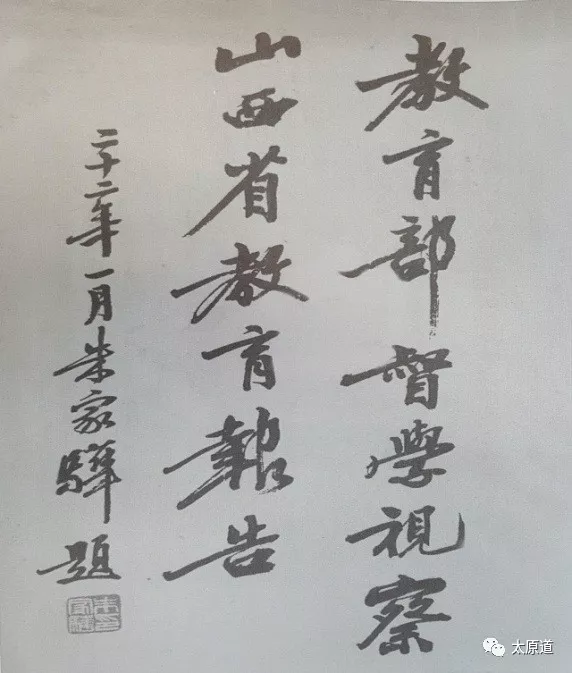 教育部督學視察
山西省教育報告
二十二年一月朱家驊題
太原道